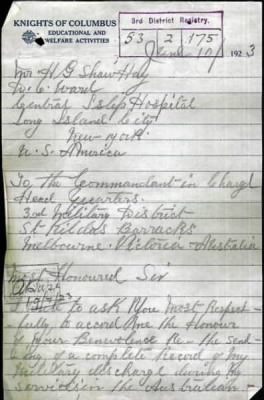 KNIGHTS OF COLUMBUS
EDUCATIONAL AND
WELFARE ACTIVITIES
3rd District Registry.
53 2 175
June 10/ 1923
Mr H G Shaw Hay
W. C. Ward
Central Islip Hospital
Long Island City
New York
U. S. America
To the Commandant in Charg
Head Quarters.
3rd Military District
St Kilda Barracks
Melbourne. Victoria Australia
Most Honoured Sir
to ask You Most Respect-
fully, to accord Me the Honour
of Your Benevolence Re the Send-
ing of a complete Record of My
Military discharge during My
services in the Australian